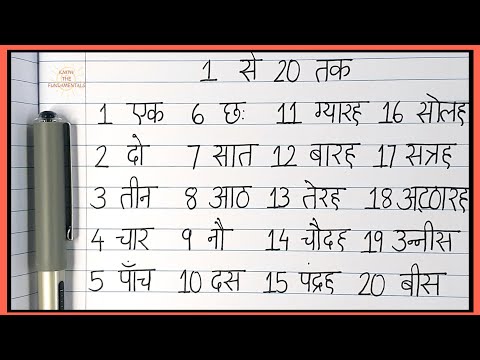 KNOW
THE
FUNDAMENTALS
1 से 20 तक
1 एक 6 छः 11 ग्यारह 16 सोलह
2 दो 7 सात 12 बारह 17 सत्रह
3 तीन 8 आठ 13 तेरह 18 अट्ठारह
4 चार 9 नौ 14 चौदह 19 उन्नीस
5 पाँच 10 दस 15 पंद्रह 20 बीस